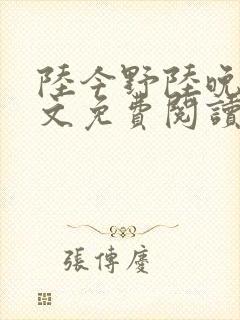 陸今野陸晚
文免費閱讀
張傳慶